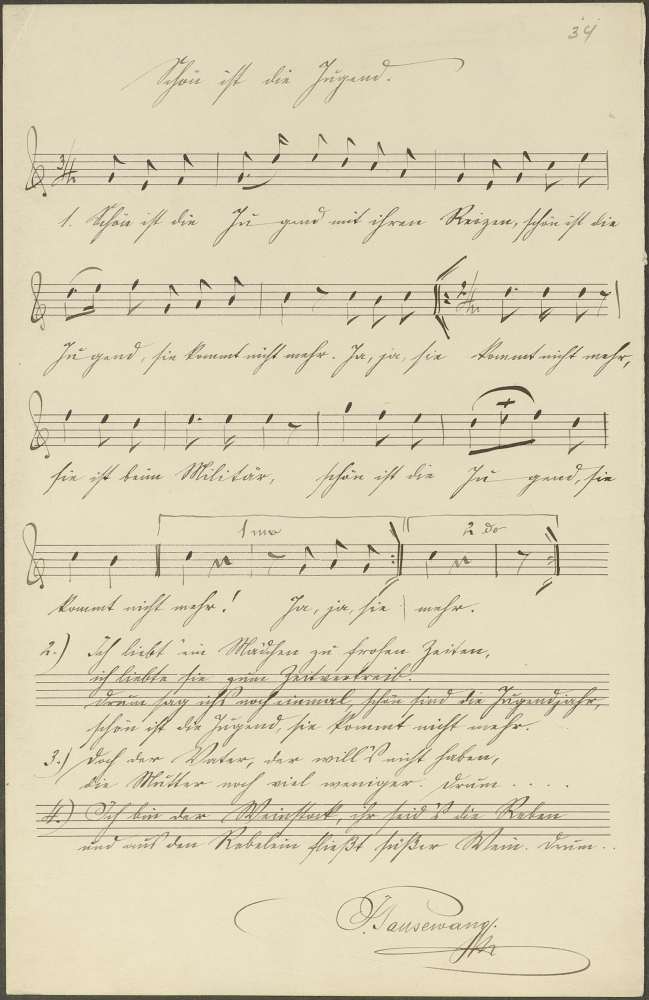 34
Schön ist die Jugend.
1. Schön ist die Ju gend mit ihren Reizen, schön ist die
Ju gend, sie kommt nicht mehr. Ja, ja, sie kommt nicht mehr,
sie ist beim Militär, schön ist die Ju gend, sie
1 mo 2 do
kommt nicht mehr! Ja, ja, sie mehr.
2.) Ich liebt' ein Mädchen zu frohen Zeiten,
ich liebte sie zum Zeitvertreib.
Drum sag ich's noch einmal, schön sind die Jugendjahr,
schön ist die Jugend, sie kommt nicht mehr.
3.) Doch der Vater, der will's nicht haben,
die Mutter noch viel weniger. Drum . . . . .
4.) Ich bin der Weinstock, ihr seid's die Reben
und aus den Rebelein fließt süßer Wein. Drum . .
Tausewang.